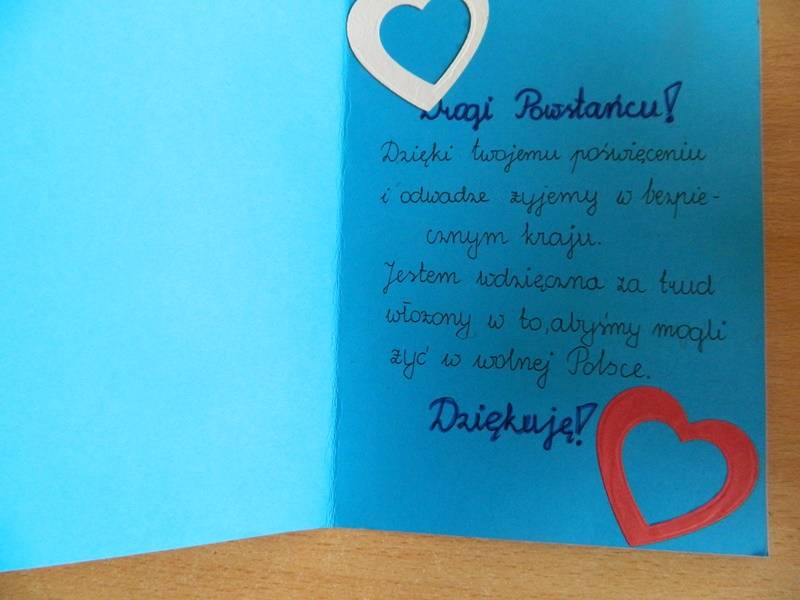 Drogi Powstańcu!
Dzięki twojemu poświęceniu
i odwadze żyjemy w bezpie-
cznym kraju.
Jestem wdzięczna za trud
włożony w to, abyśmy mogli
żyć w wolnej Polsce.
Dziękuję!